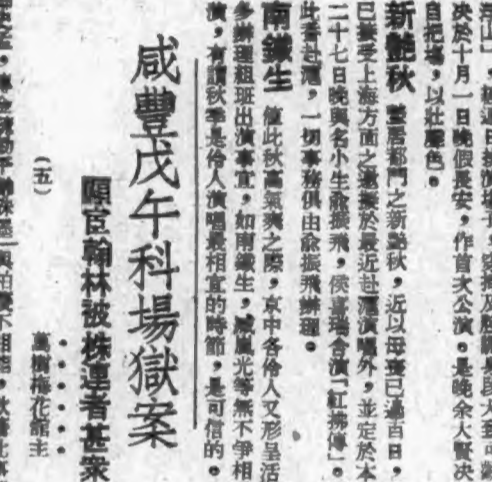 決於十月一日晚假長安，作首次公演。是晚余大賢決
自把場，以壯聲色。
新艷秋 蟄居都門之新艷秋，近以母喪已過百日，
已接受上海方面之邀聘於最近赴滬演唱外，並定於本
二十七日晚與名小生俞振飛，侯喜瑞合演「紅拂傳」。
此番赴滬，一切事務俱由俞振飛辦理。
南鐵生 值此秋高氣爽之際，京中各伶人又形呈活
多辦理組班出演事宜，如南鐵生，臧嵐光等無不爭相
演，有謂秋季是伶人演唱最相宜的時節，是可信的。
咸豐戊午科場獄案
顯宦翰林被株連者甚衆
（五）
梅花館主